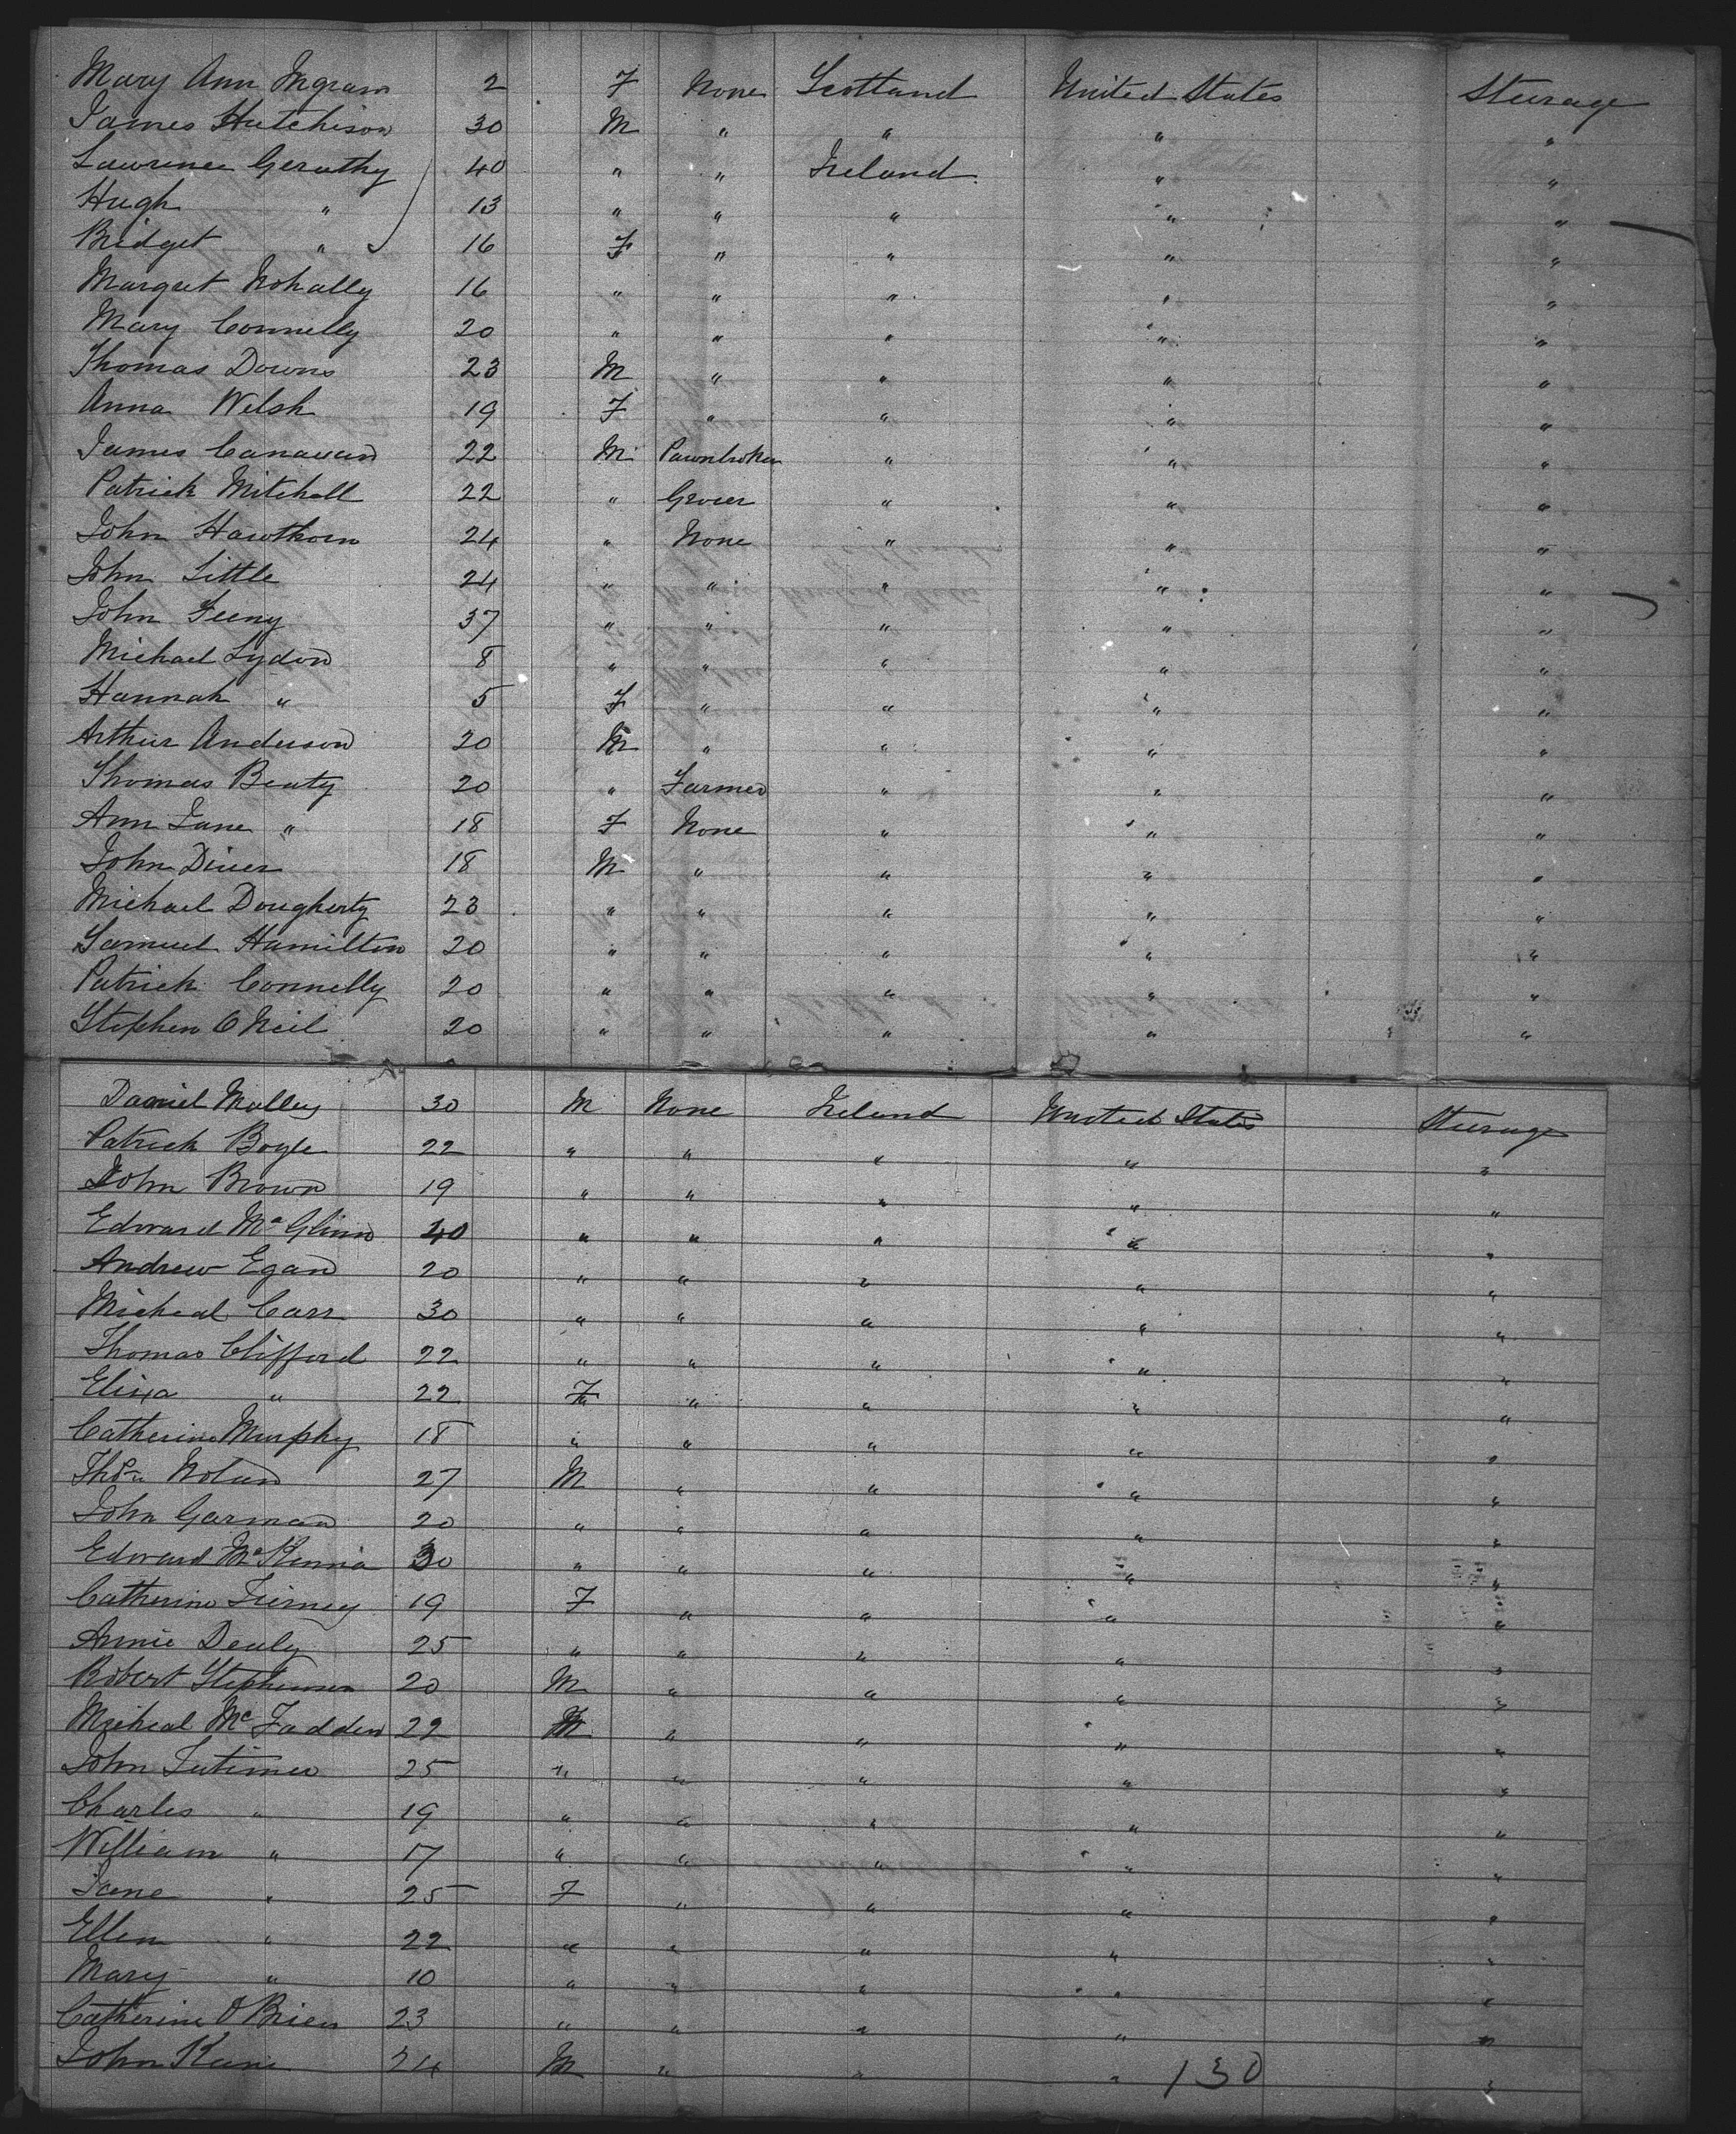 Mary Ann Ingram 2 F None Scotland United States Steerage
James Hutchison 30 M " " " "
Lawrence Gerathy 40 " " Ireland " "
Hugh " 13 " " " " "
Bridget " 16 F " " " "
Margret 16 " " " " "
Mary Connelly 20 " " " " "
Thomas Downs 23 M " " " "
Anna Welsh 19 F " " " "
James Canavan 22 M Pawnbroker " " "
Patrick Mitchell 22 " Grocer " " "
John Hawthorn 24 " None " " "
John Little 24 " " " " "
John Feeny 37 " " " " "
Michael Lydon 8 " " " " "
Hannah " 5 F " " " "
Arthur Anderson 20 M " " " "
Thomas Beaty 20 " Farmer " " "
Ann Jane " 18 F None " " "
John Diver 18 M " " " "
Michael Dougherty 23 " " " " "
Samuel Hamilton 20 " " " " "
Patrick Connelly 20 " " " " "
Stephen O Neil 20 " " " " "
Daniel Malley 30 M None Ireland United States Steerage
Patrick Boyle 22 " " " " "
John Brown 19 " " " " "
Edward Mc Glinn 40 " " " " "
Andrew Egan 20 " " " " "
Micheal Carr 30 " " " " "
Thomas Clifford 22 " " " " "
Eliza " 22 F " " " "
Catherine Murphy 18 " " " " "
Thos Nolan 27 M " " " "
John Garman 20 " " " " "
Edward McKenna 30 " " " " "
Catherine Tierney 19 F " " " "
Annie Dealy 25 " " " " "
Robert Stephenson 20 M " " " "
Micheal McFadden 22 M " " " "
John Latimer 25 " " " " "
Charles " 19 " " " " "
William " 17 " " " " "
Jane " 25 F " " " "
Ellen " 22 " " " " "
Mary " 10 " " " " "
Catherine O'Brien 23 " " " " "
John Kane 24 M " " " "
130